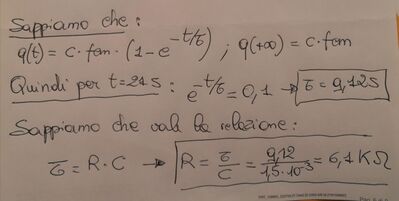 Sappiamo che:
q(t) = C · fem · (1 - e^{-t/τ}) ; q(+∞) = C · fem
Quindi per t=21s : e^{-t/τ} = 0,1 → τ = 9,12s
Sappiamo che vale la relazione:
τ = R · C → R = τ/C = 9,12/1,5·10^{-3} = 6,1 KΩ